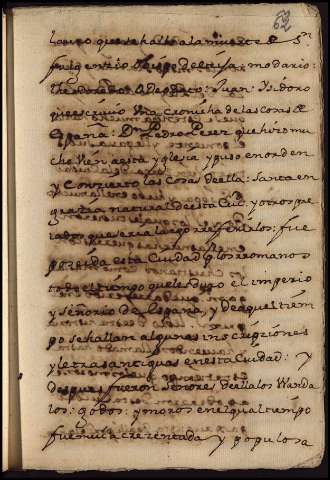 62
lauro que se hallo a la muerte de Sn
fulgentio obispo de ecija: modario:
theodorado: Adeodato: Juan: Isidoro
que escriuio Una Cronicha de las cosas de
España: Dn Pedro Perez que hizo mu
cho bien a esta yglesia y puso en orden
y Conzierto las cosas de ella: Santa en
gratia natural de esta Ciud. y otros pre
lados que seria largo referirlos: fue
poseida esta Ciudad de los romanos
todo el tiempo que les duro el imperio
y señorio de España, y de aquel tiem
po se hallan algunas inscrepziones
y letras antiguas en esta Cuidad: y
despues fueron señores de ella los Wanda
los: godos: y moros en el qual tiempo
fue mui acrezentada y populosa